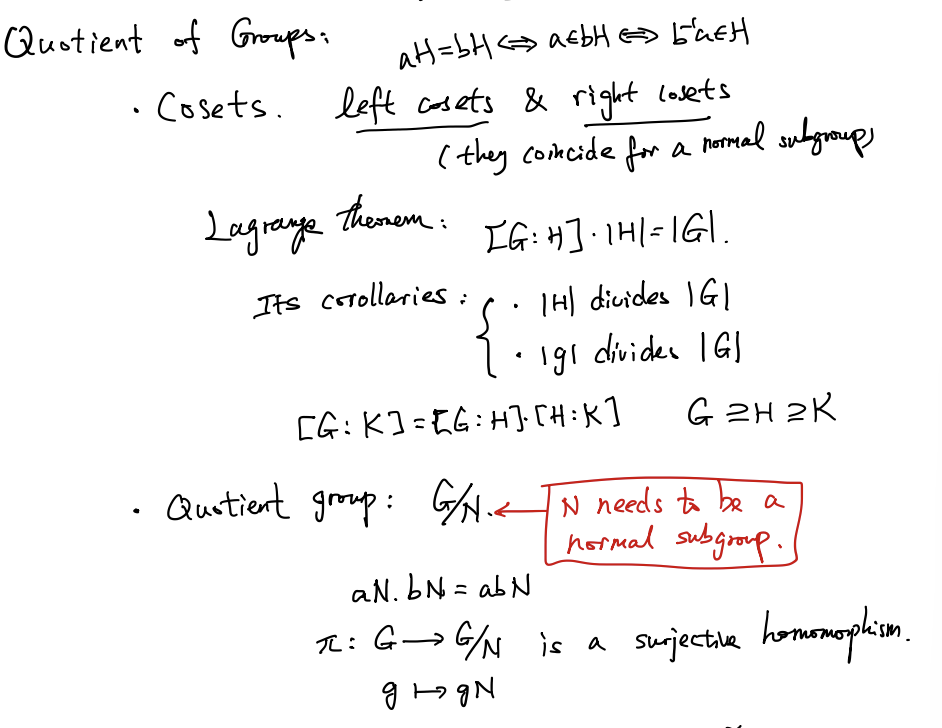 Quotient of Groups: aH=bH ⟺ a∈bH ⟺ b⁻¹a∈H
· Cosets. left cosets & right cosets
(they coincide for a normal subgroup)
Lagrange theorem: [G:H]·|H|=|G|.
Its corollaries: { · |H| divides |G|
· |g| divides |G|
[G:K]=[G:H]·[H:K] G ≥ H ≥ K
· Quotient group: G/N. ← N needs to be a
normal subgroup.
aN.bN = abN
π: G → G/N is a surjective homomorphism.
g ↦ gN